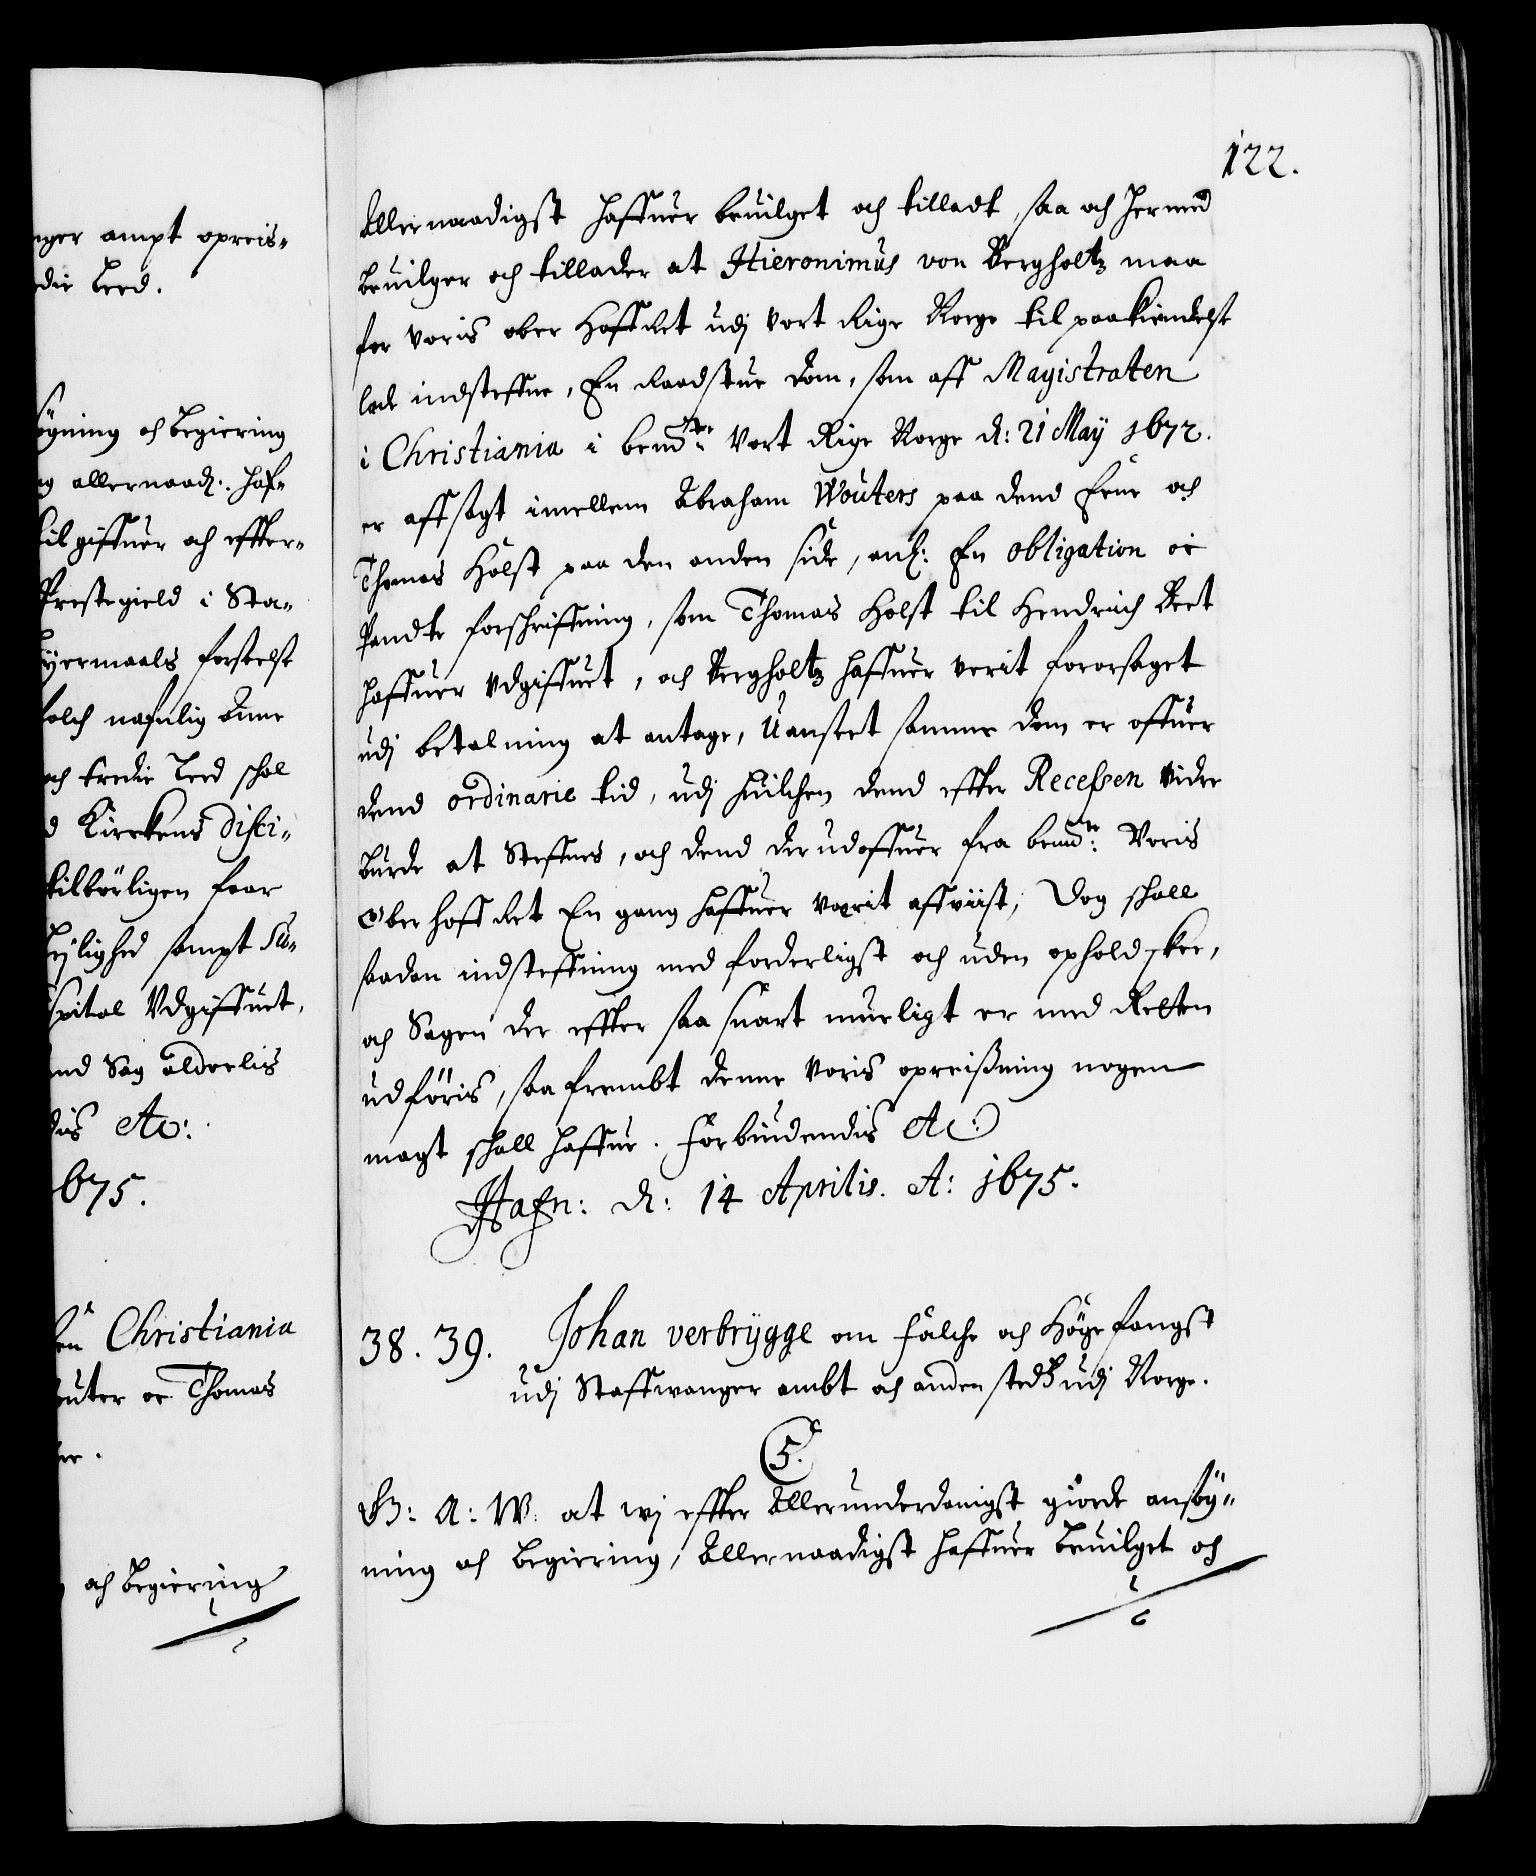 nger ampt opreis-
die Leed.
øgning och begiering
og allernaad: haf-
til giffuer och effter-
Prestegield i Sta-
yermaals forseelse
folch nafnlig Anne
och tredie Leed schal
d Kirckens Disci-
tilbørligen faar
lejlighed sampt Su-
spital Udgiffuet,
und Sag alderlis
dis &c:
675.
en Christiania
outer oc Thomas
er.
och begiering
122.
Allernaadigst haffuer beuilget och tilladt, saa och hermed
beuilger och tillader at Hieronimus von Bergholtz maa
for voris ober Hoffret udj Vort Rige Norge til paakiendelse
lade indsteffne, En Raadstue Dom, som aff Magistraten
i Christiania i bemdte: Vort Rige Norge d: 21 May 1672.
er affsagt imellem Abraham Wouters paa dend Eene och
Thomas Holst paa den anden side, anl: En obligation oc
Pandte forschriffning, som Thomas Holst til Hendrich Beet
haffuer Udgiffuet, och Bergholtz haffuer verit foraarsaget
udj betalning at antage, Uanseet samme Dom er offuer
dend ordinarie tid, udj huilchen dend effter Recessen vider
burde at Steffnes, och dend derudoffuer fra bemdte: Voris
Oberhoffret En gang haffuer værit affviist, Dog schall
saadan indsteffning med forderligst och uden ophold skee,
och Sagen der effter saa snart mueligt er med Retten
udføris, saafrembt denne Voris opreisning nogen
magt schall haffue. Forbiudendis &c:
Hafn: d: 14 Aprilis. A: 1675.
38. 39. Johan verbrygge om Falche och Høgefangst
udj Staffwanger ambt och anden steds udj Norge.
5.
G: A: W: at wj effter Allerunderdanigst giorde ansøg-
ning och begiering, Allernaadigst haffuer beuilget och